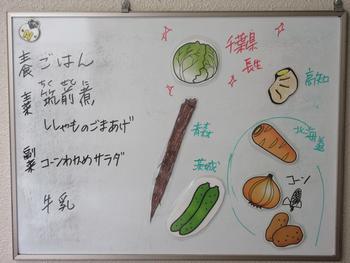 主食 ごはん
ちくぜんに
主菜 筑前煮
ししゃものごまあげ
副菜 コーンわかめサラダ
牛乳
千葉県
長生
高知
北海道
青森
茨城
コーン